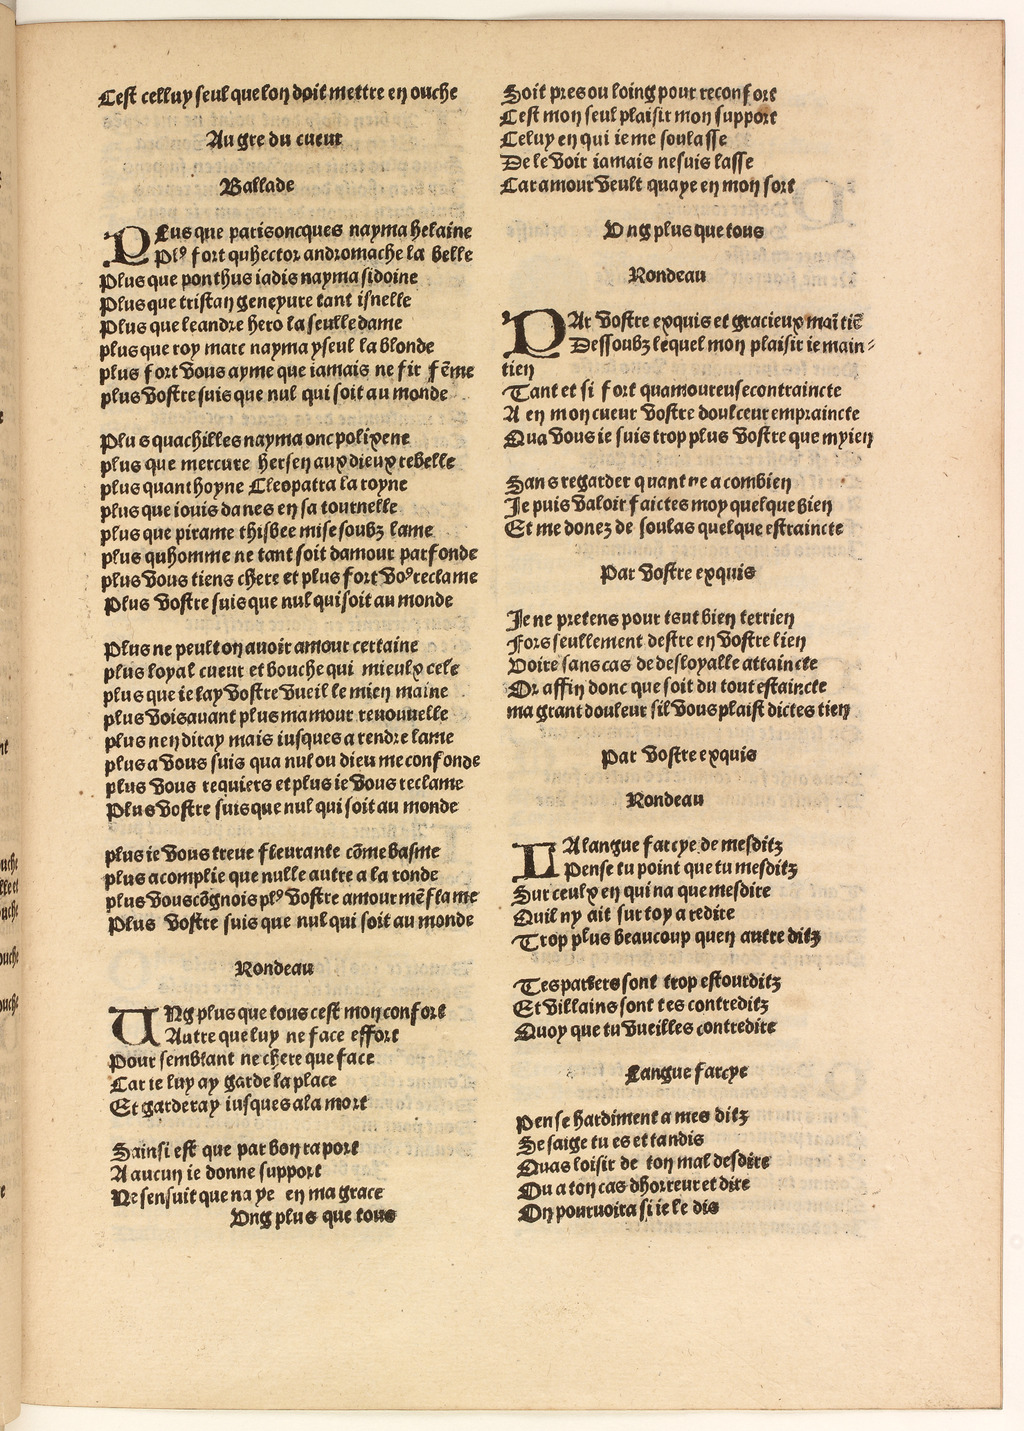 Cest celluy seul que lon doit mettre en ouche
Au gre du cueur
Ballade
PLus que paris oncques nayma helaine
Plꝰ fort quhector andromache la belle
Plus que ponthus iadis nayma sidoine
Plus que tristan geneyure tant isnelle
Plus que leandre hero la seulle dame
plus que roy marc nayma yseul la blonde
plus fort vous ayme que iamais ne fit fẽme
plus vostre suis que nul qui soit au monde
Plus quachilles nayma onc polixene
plus que mercure hersen aux dieux rebelle
plus quanthoyne Cleopatra la royne
plus que iouis danes en sa tournelle
plus que pirame thisbee mise soubz lame
plus quhomme ne tant soit damour parfonde
plus vous tiens chere et plus fort voꝰ reclame
Plus vostre suis que nul qui soit au monde
Plus ne peult on auoir amour certaine
plus loyal cueur et bouche qui mieulx cele
plus que ie lay vostre vueil le mien maine
plus vois auant plus mamour renouuelle
plus nen diray mais iusques a rendre lame
plus a vous suis qua nul ou dieu me confonde
plus vous requiers et plus ie vous reclame
Plus vostre suis que nul qui soit au monde
plus ie vous treue fleurante cõme basme
plus acomplie que nulle autre a la ronde
plus vous cõgnois plꝰ vostre amour mẽflame
Plus vostre suis que nul qui soit au monde
Rondeau
VNg plus que tous cest mon confort
Autre que luy ne face effort
Pour semblant ne chere que face
Car ie luy ay garde la place
Et garderay iusques a la mort
Sainsi est que par bon raport
A aucun ie donne support
Ne sensuit que naye en ma grace
Vng plus que tous
Soit pres ou loing pour reconfort
Cest mon seul plaisir mon support
Celuy en qui ie me soulasse
De le voir iamais ne suis lasse
Car amour veult quaye en mon sort
Vng plus que tous
Rondeau
PAr vostre exquis et gracieux maĩtiẽ
Dessoubz lequel mon plaisir ie main⸗
tien
Tant et si fort quamoureuse contraincte
A en mon cueur vostre doulceur empraincte
Qua vous ie suis trop plus vostre que myien
Sans regarder quant ne a combien
Je puis valoir faictes moy quelque bien
Et me donez de soulas quelque estraincte
Par vostre exquis
Je ne pretens pour tout bien terrien
Fors seullement destre en vostre lien
Voire sans cas de desloyalle attaincte
Or affin donc que soit du tout estaincte
ma grant douleur sil vous plaist dictes tien
Par vostre exquis
Rondeau
LA langue farcye de mesditz
Pense tu point que tu mesditz
Sur ceulx en qui na que mesdire
Quil ny ait sur toy a redire
Trop plus beaucoup quen autre ditz
Tes parlers sont trop estourditz
Et villains sont tes contreditz
Quoy que tu vueilles contredire
Langue farcye
Pense hardiment a mes ditz
Se saige tu es et tandis
Quas loisir de ton mal desdire
Ou a ton cas dhorreur et dire
On pouruoira si ie le dis